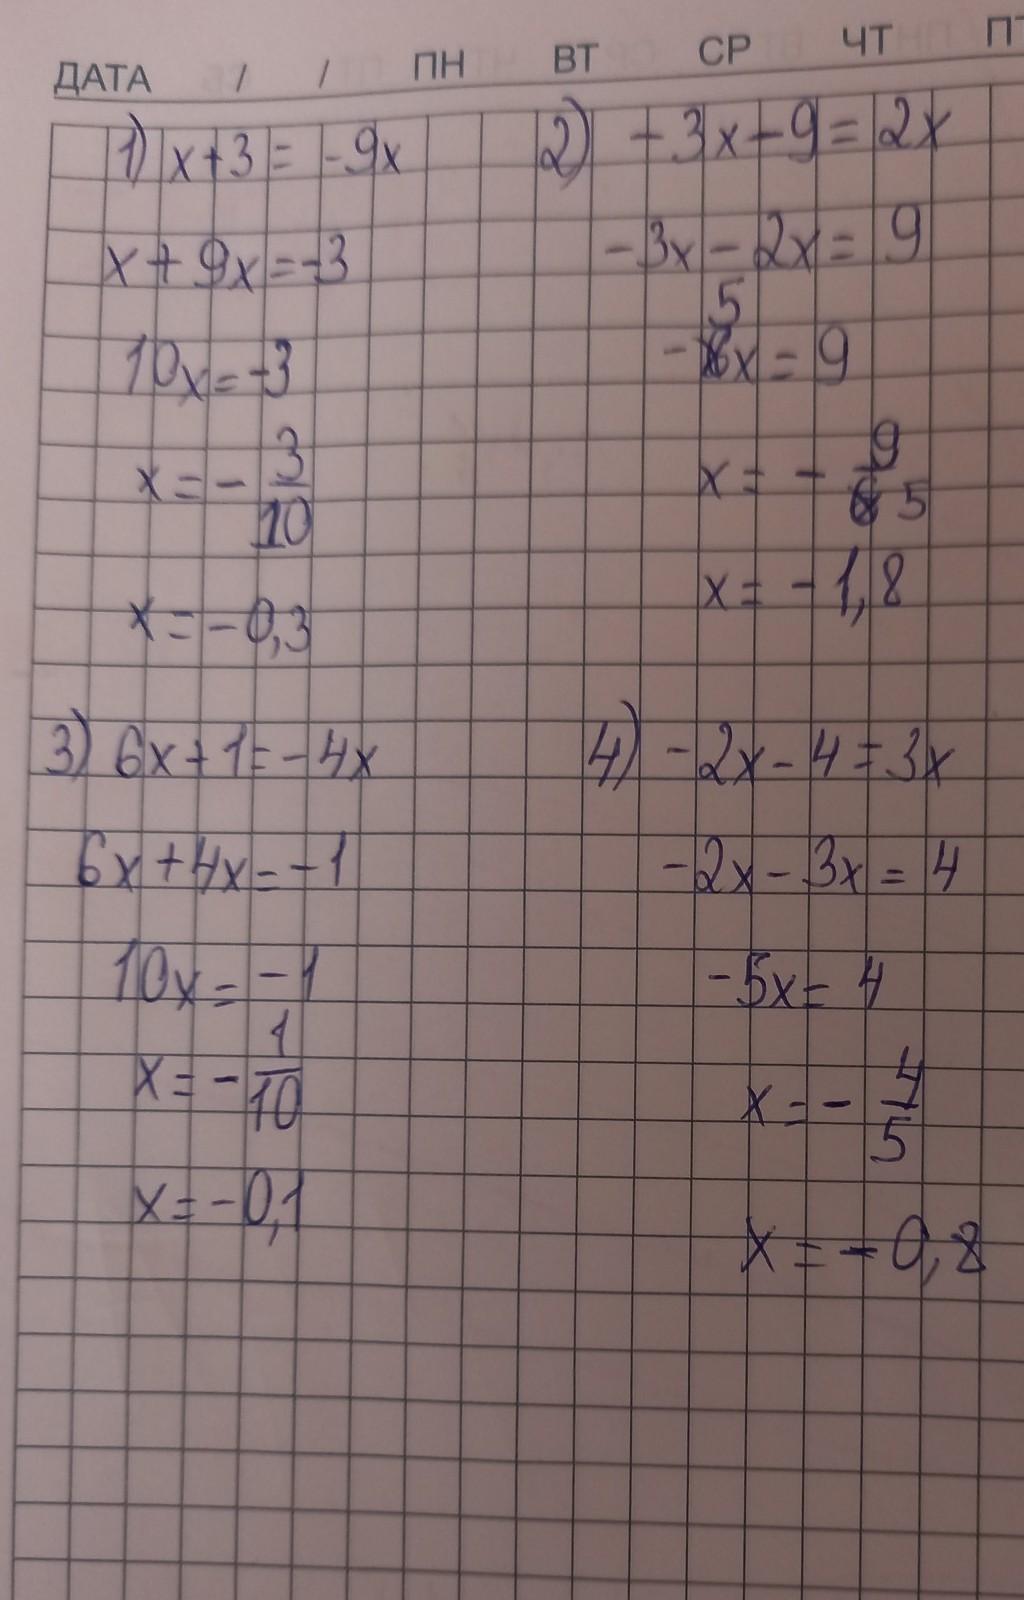 ДАТА / / ПН ВТ СР ЧТ ПТ
1) x+3 = -9x
x + 9x = -3
10x = -3
x = - 3/10
x = -0,3
2) -3x-9 = 2x
-3x - 2x = 9
-5x = 9
x = - 9/5
x = -1,8
3) 6x+1 = -4x
6x+4x = -1
10x = -1
x = - 1/10
x = -0,1
4) -2x-4 = 3x
-2x - 3x = 4
-5x = 4
x = - 4/5
x = -0,8